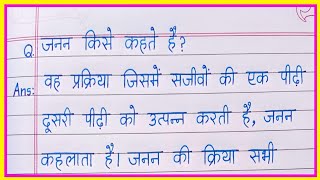 Q. जनन किसे कहते है?
Ans: वह प्रक्रिया जिसमें सजीवों की एक पीढ़ी
दूसरी पीढ़ी को उत्पन्न करती है, जनन
कहलाता है। जनन की क्रिया सभी